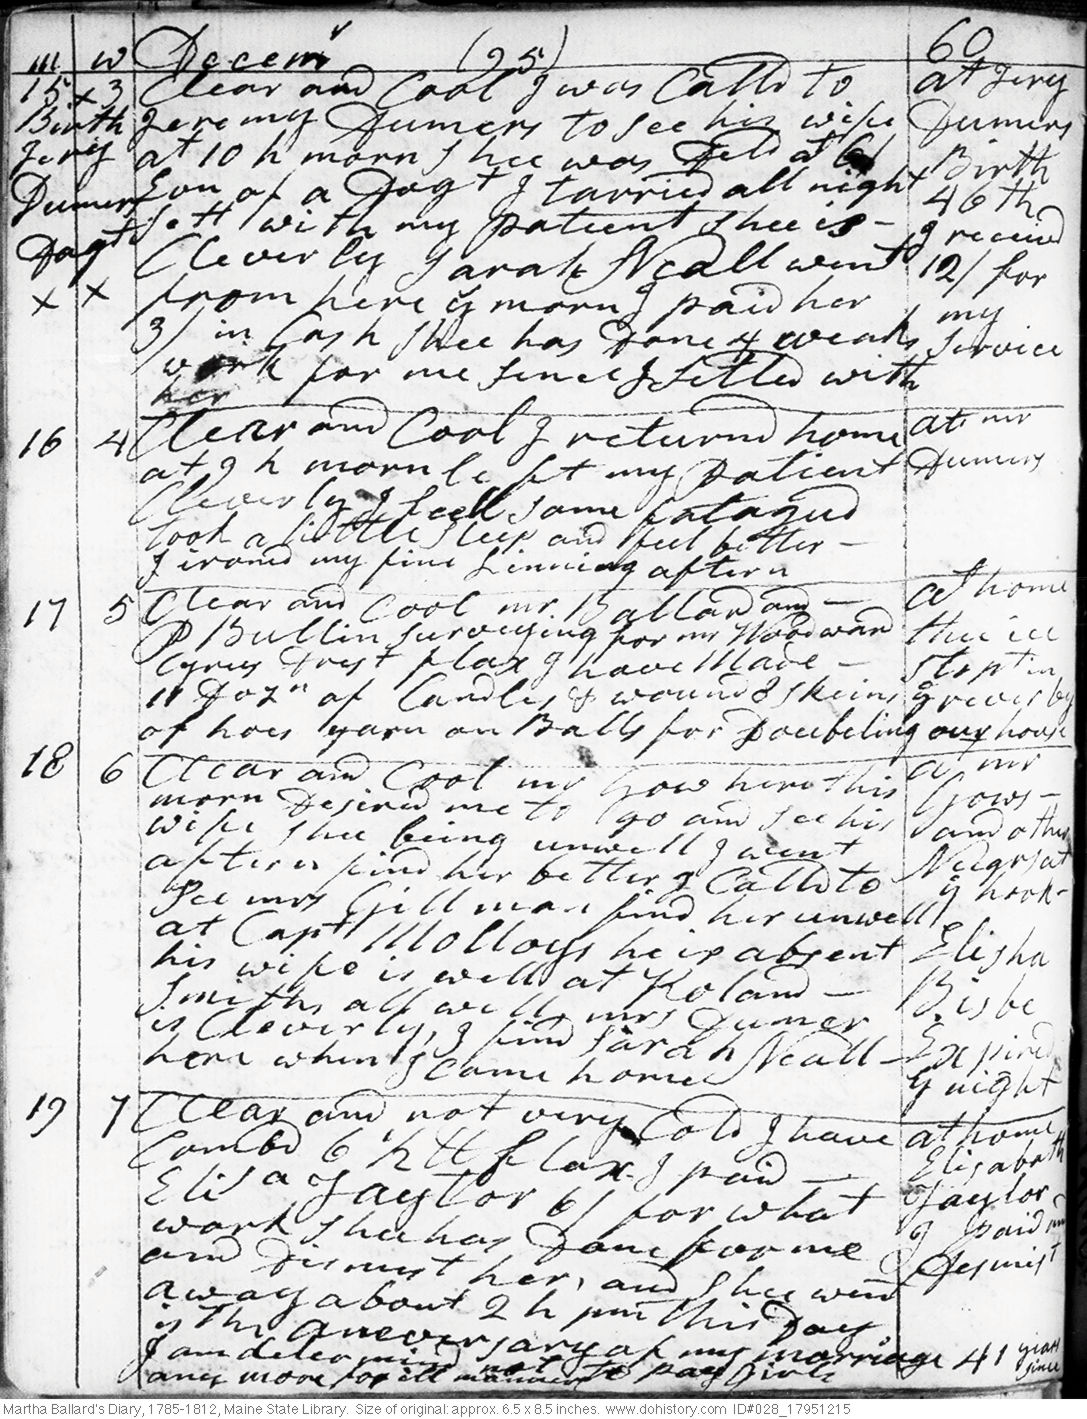 m w Decemr (95) 60
15 x 3 Clear and Cool I was Calld to at Jery
Birth Jeremy Dumers to see his wife Dumers
Jery at 10 h morn shee was Deld at 6 Birth
Dumers Evn of a Dagt I tarried all night 46th
Dagt Sett with my patient shee is - I receivd
Cleverly Sarah Neall went 12/ for
x x from here ys morn I paid her my
3/ in Cash shee has Done 4 weaks service
work for me sence I settled with
her
16 4 Clear and Cool I returnd home at mr
at 9 h morn left my patient Dumers
Cleverly I feel some fatagud
took a little sleep and feel better -
I ironed my fine Linning aftern
17 5 Clear and Cool mr Ballard and - at home
P Bullin surveying for mr Woodward the ice
Cyrus Drest flax I have Made - stopt in
11 Dozn of Candles & wound 8 skeins ye river by
of hoes yarn on Balls for Doubeling our house
18 6 Clear and Cool mr Gow here this at mr
morn Desired me to go and see his Gows -
wife shee being unwell I went and other
aftern find her better I Calld to Neigrs at
see mrs Gillman find her unwell ye hook -
at Capt Molloys he is absent Elisha
his wife is well at Roland - Bisbe
Smiths all well, mrs Dumer Expired
is Cleverly, I find Sarah Neall - ys night
here when I Came home
19 7 Clear and not very Cold I have at home
Combd 6 1/2 lb flax. I paid - Elisabath
Elisa Taytor 6/ for what Taylor
work shee has Done for me I paid and
and Dismist her, and shee went Desmist
away about 2 h pm this Day
is the aneversary of my marriage 41 years since
I am determind not to pay girls
any more for ill manners
Martha Ballard's Diary, 1785-1812, Maine State Library. Size of original: approx. 6.5 x 8.5 inches. www.dohistory.com ID#028_17951215